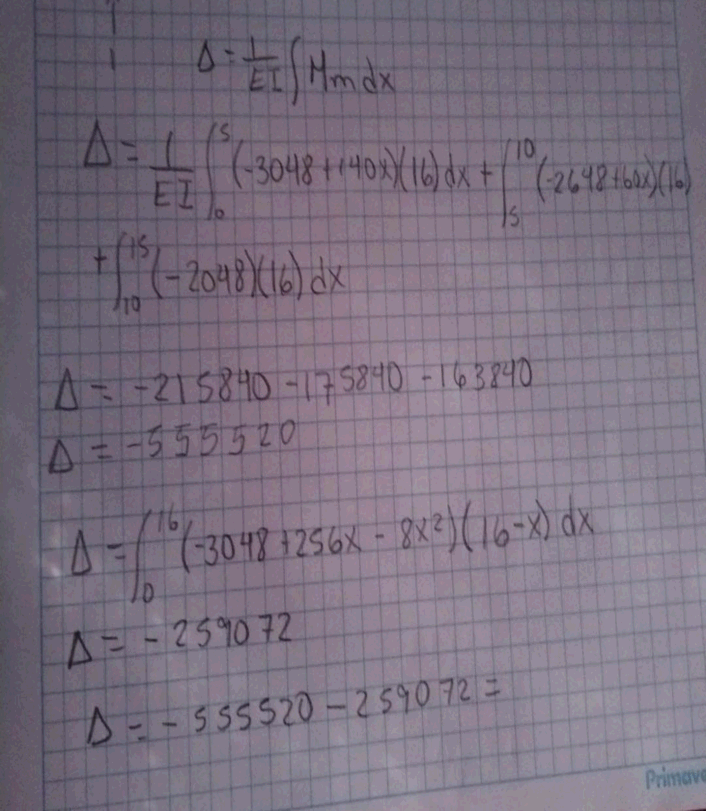 Δ = 1/EI ∫ Mm dx
Δ = 1/EI ∫₀⁵ (-3048+140x)(16) dx + ∫₅¹⁰ (-2648+60x)(16)
+ ∫₁₀¹⁵ (-2048)(16) dx
Δ = -215840 -175840 -163840
Δ = -555520
Δ = ∫₀¹⁶ (-3048+256x - 8x²)(16-x) dx
Δ = -259072
Δ = -555520 - 259072 =